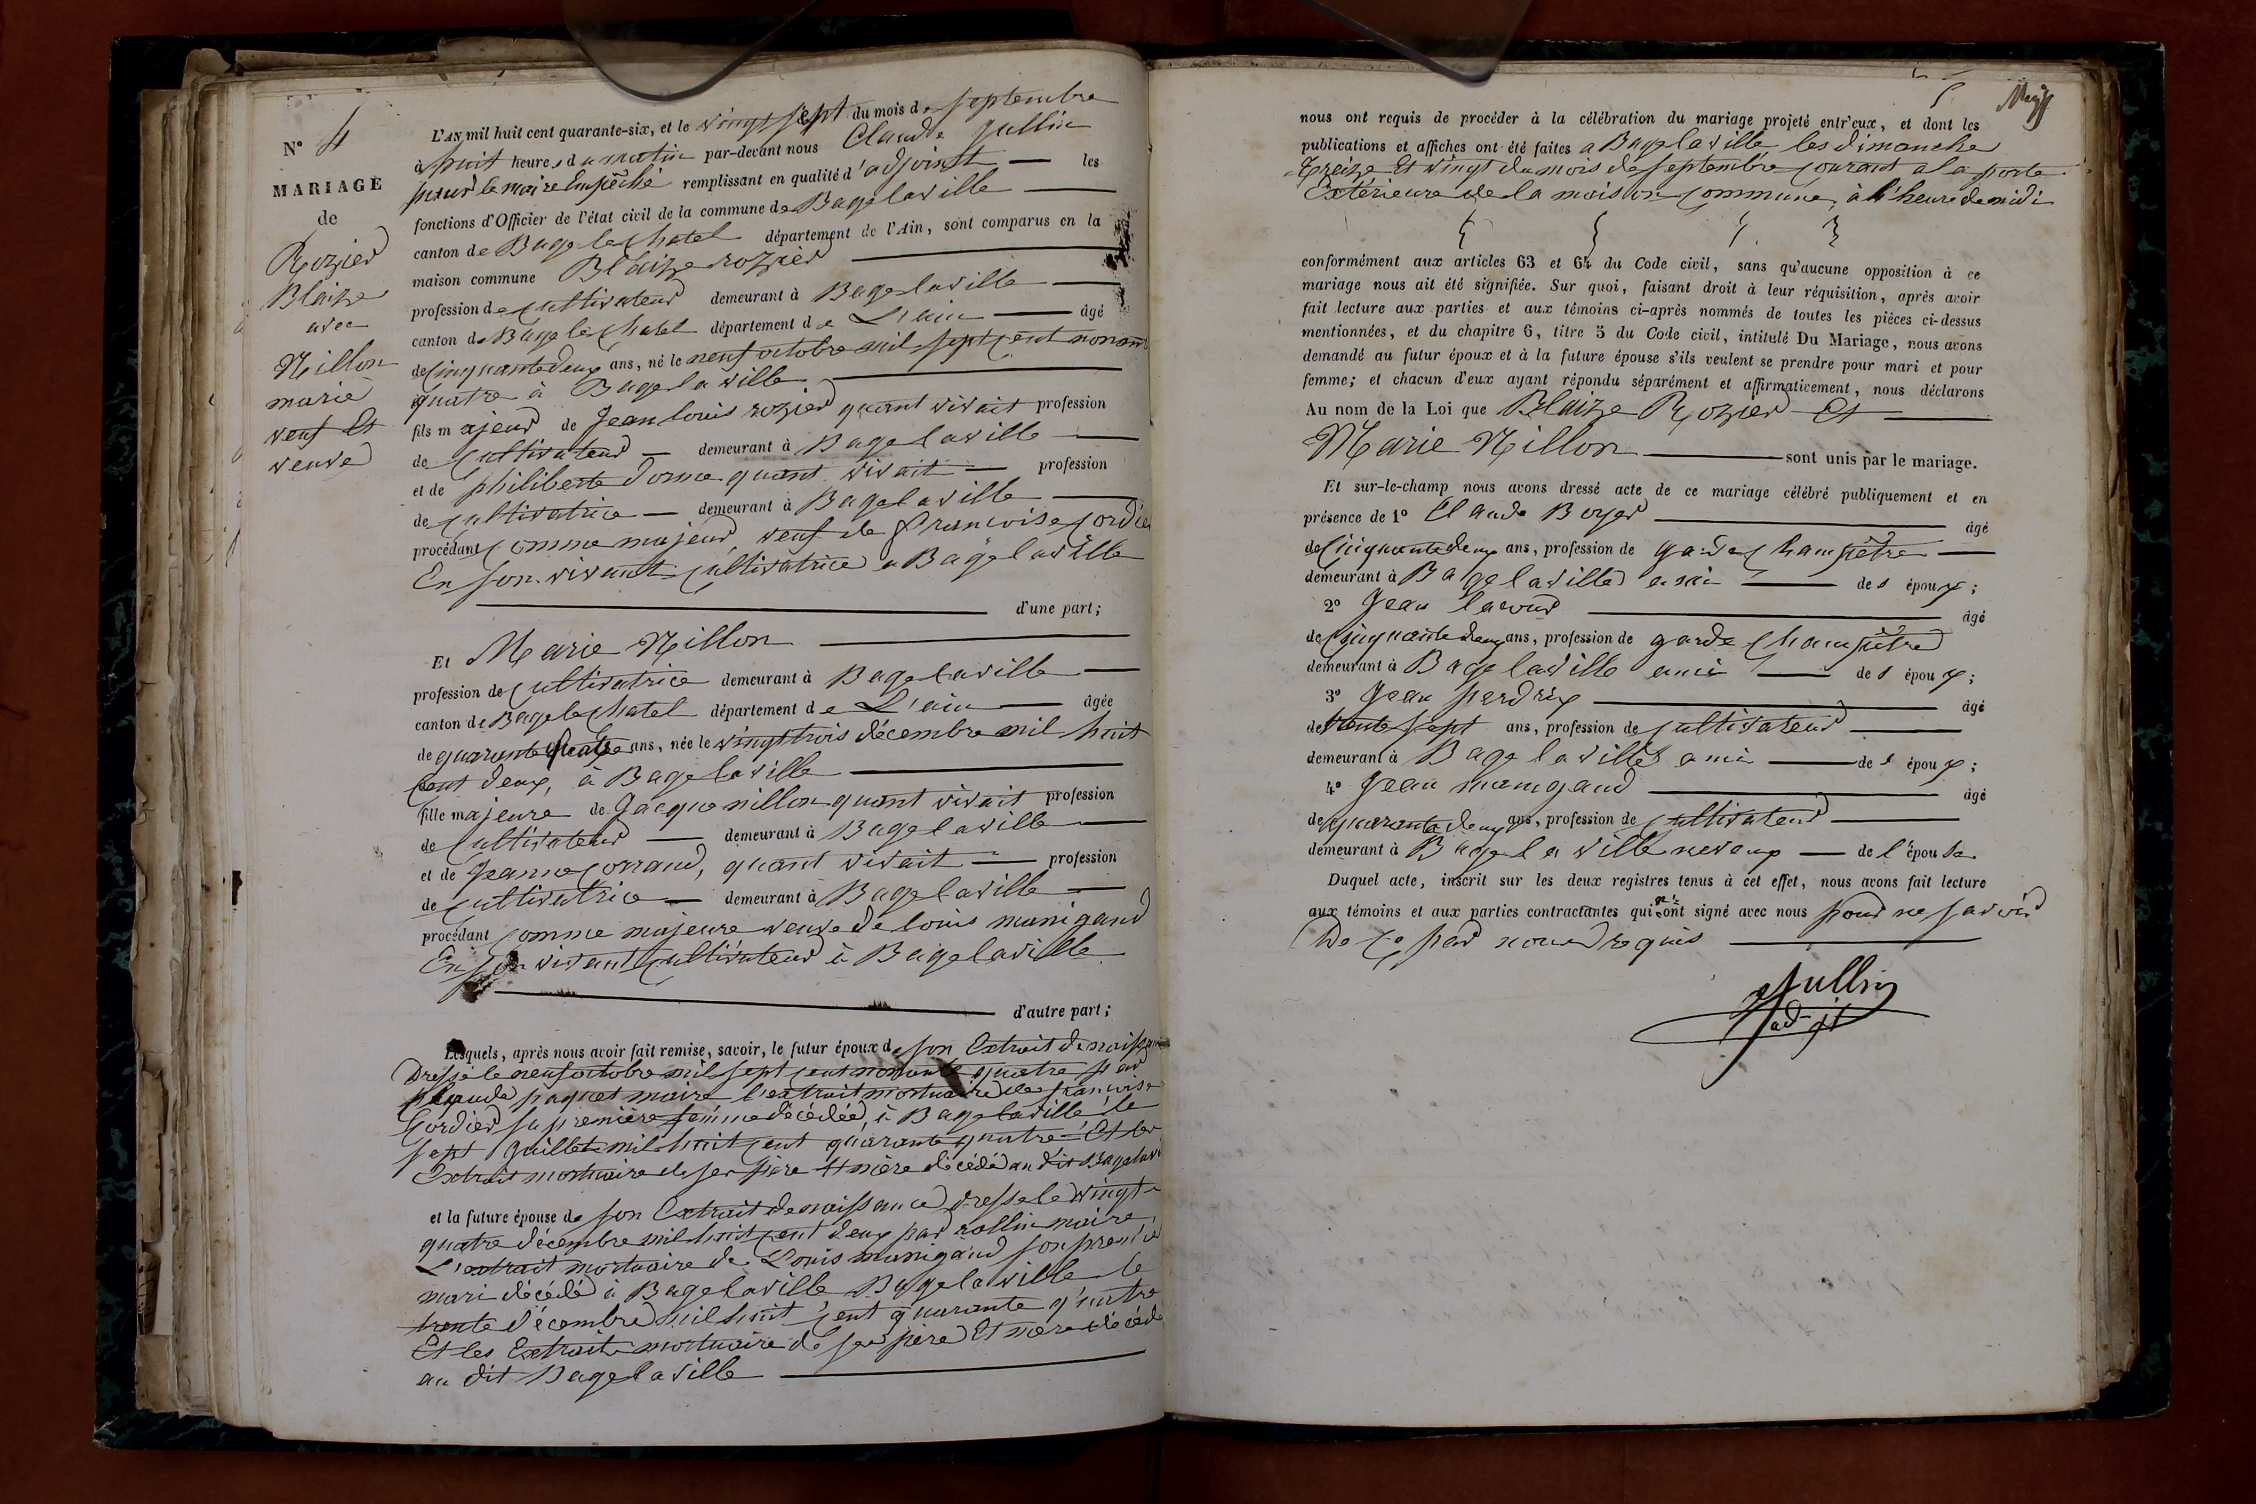 N° 4
MARIAGE
de
Rozier
Blaize
avec
Nillon
marie
veuf Et
veuve
L'AN mil huit cent quarante-six, et le vingt sept du mois de septembre
à huit heures du matin par-devant nous Claude Jullin
pour le maire Empêché remplissant en qualité d'adjoint les
fonctions d'Officier de l'état civil de la commune de Bagelaville
canton de Bage le Chatel département de l'Ain, sont comparus en la
maison commune Blaize rozier
profession de Cultivateur demeurant à Bagelaville
canton de Bage le Chatel département de L'ain âgé
de Cinquante deux ans, né le neuf octobre mil sept cent nonante
quatre à Bagelaville
fils majeur de Jean louis rozier quant vivait profession
de Cultivateur demeurant à Bagelaville
et de philiberte Dorne quant vivait profession
de Cultivatrice demeurant à Bagelaville
procédant Comme majeur, veuf de Francoise Cordier
En son vivant Cultivatrice a Bagelaville
d'une part;
Et Marie Nillon
profession de Cultivatrice demeurant à Bagelaville
canton de Bage le Chatel département de L'ain âgée
de quarante quatre ans, née le vingt trois décembre mil huit
Cent deux, à Bagelaville
fille majeure de Jacque nillon quant vivait profession
de Cultivateur demeurant à Bagelaville
et de Jeanne Corraud, quant vivait profession
de Cultivatrice demeurant à Bagelaville
procédant Comme majeure veuve de louis manigand
En son vivant Cultivateur à Bagelaville
d'autre part;
Lesquels, après nous avoir fait remise, savoir, le futur époux de son Extrait de naissance
Dressé le neuf octobre mil sept cent nonante quatre par
Claude paquet maire l'extrait mortuaire de Francoise
Cordier sa première femme décédée, à Bagelaville le
sept Juillet mil huit cent quarante quatre Et les
Extrait mortuaire de ses père Et mère décédé au dit Bagelavi
et la future épouse de son Extrait de naissance dressé le vingt-
quatre décembre mil huit cent deux par rollin maire,
L'extrait mortuaire de Louis manigand son premier
mari décédé à Bagelaville Bagelaville le
trente décembre mil huit cent quarante quatre
Et les Extrait mortuaire de ses père Et mère décédé
au dit Bagelaville
nous ont requis de procéder à la célébration du mariage projeté entr'eux, et dont les
publications et affiches ont été faites a Bagelaville les dimanche
Treize Et vingt du mois de septembre courant a la porte
Extérieure de la maison Commune, à l'heure de midi
conformément aux articles 63 et 64 du Code civil, sans qu'aucune opposition à ce
mariage nous ait été signifiée. Sur quoi, faisant droit à leur réquisition, après avoir
fait lecture aux parties et aux témoins ci-après nommés de toutes les pièces ci-dessus
mentionnées, et du chapitre 6, titre 5 du Code civil, intitulé Du Mariage, nous avons
demandé au futur époux et à la future épouse s'ils veulent se prendre pour mari et pour
femme; et chacun d'eux ayant répondu séparément et affirmativement, nous déclarons
Au nom de la Loi que Blaize Rozier Et
Marie Nillon sont unis par le mariage.
Et sur-le-champ nous avons dressé acte de ce mariage célébré publiquement et en
présence de 1° Claude Boyer âgé
de Cinquante deux ans, profession de garde Champêtre
demeurant à Bagelaville ami des époux;
2° Jean lacour âgé
de Cinquante deux ans, profession de garde Champêtre
demeurant à Bagelaville ami des époux;
3° Jean perdrix âgé
de trente sept ans, profession de Cultivateur
demeurant à Bagelaville ami des époux;
4° Jean manigand âgé
de quarante deux ans, profession de Cultivateur
demeurant à Bagelaville neveux de l'épouse
Duquel acte, inscrit sur les deux registres tenus à cet effet, nous avons fait lecture
aux témoins et aux parties contractantes qui n'ont signé avec nous pour ne savoir
De Ce par nous requis
Jullin
adjt